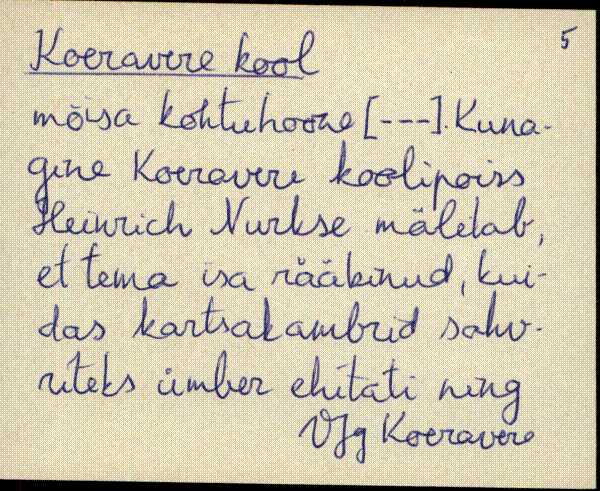 5
Koeravere kool
mõisa kohtuhoone [---]. Kuna-
gine Koeravere koolipoiss
Heinrich Nurkse mäletab,
et tema isa rääkinud, kui-
das kartsakambrid sahv-
riteks ümber ehitati ning
VJg Koeravere